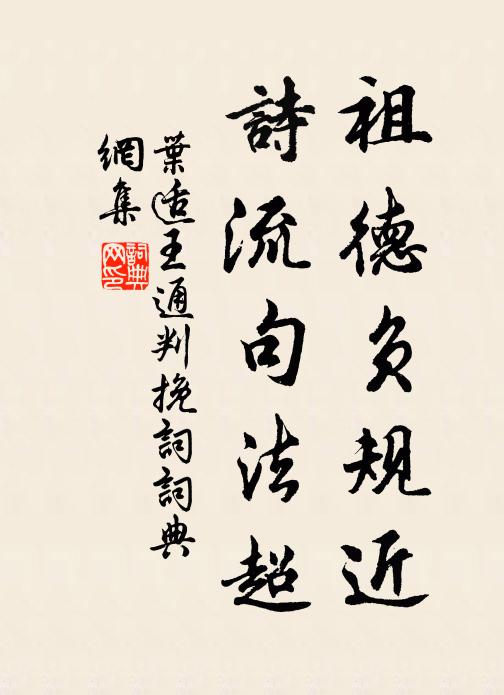 祖德負規近
詩流句法超
葉适王通判挽詞詞典
網集
詞典网印